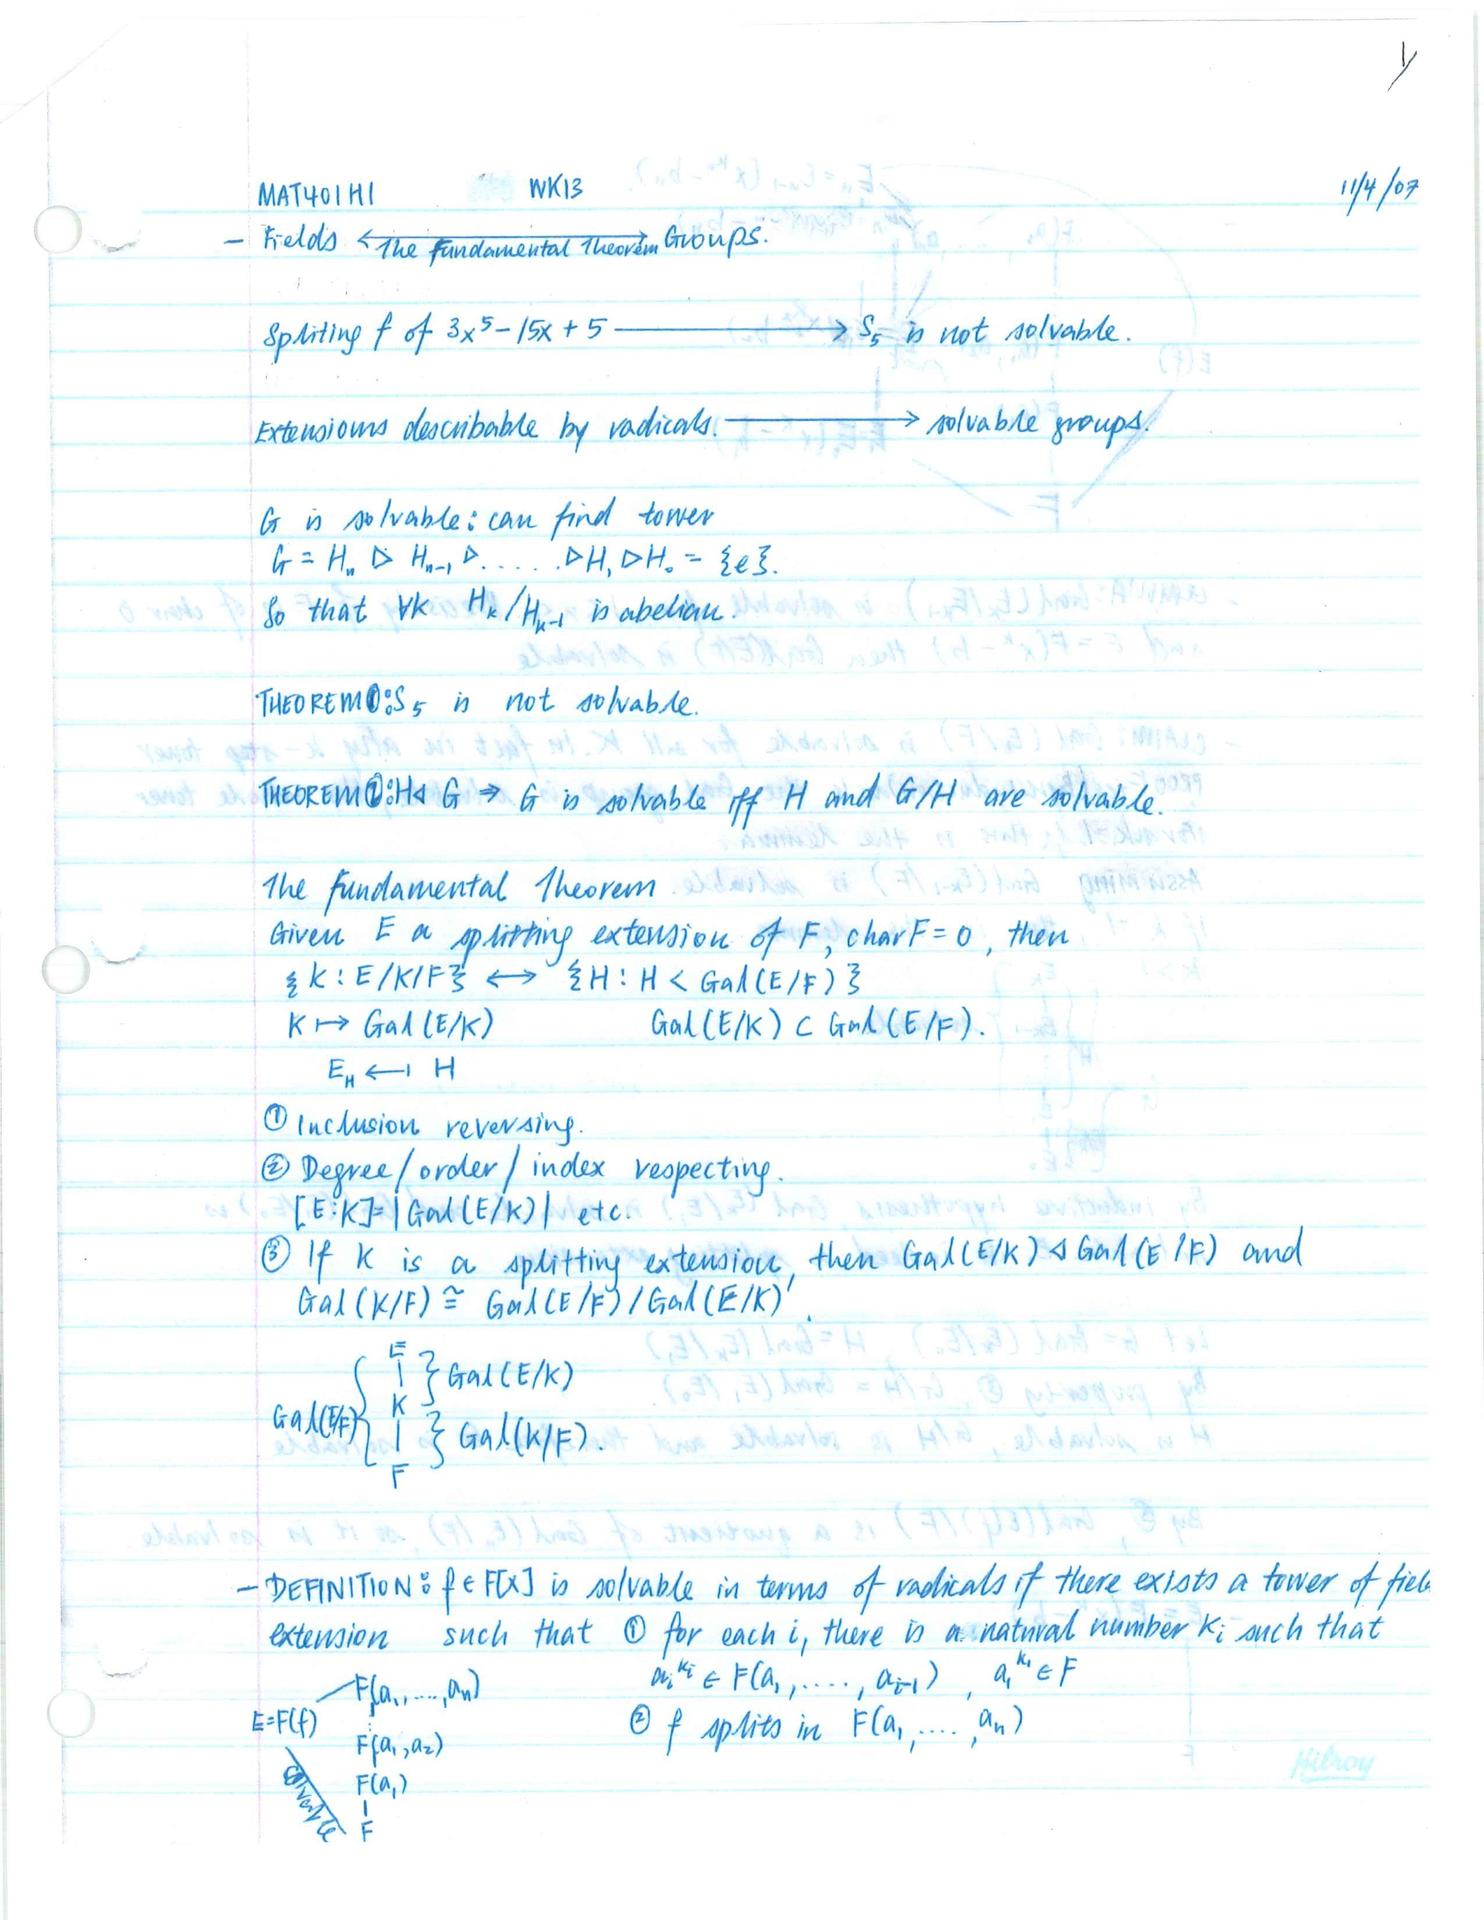 y
MAT401H1 WK13 11/4/07
- Fields ⟷ Groups.
The fundamental Theorem
Spliting f of 3x⁵-15x+5 ⟶ S₅ is not solvable.
Extensions describable by radicals. ⟶ solvable groups.
G is solvable: can find tower
G = Hₙ ▷ Hₙ₋₁ ▷ ..... ▷ H₁ ▷ H₀ = {e}.
So that ∀k Hₖ/Hₖ₋₁ is abelian.
THEOREM⓪: S₅ is not solvable.
THEOREM①: H ◁ G ⇒ G is solvable iff H and G/H are solvable.
The fundamental Theorem.
Given E a splitting extension of F, char F = 0, then
{K : E/K/F} ↔ {H : H < Gal(E/F)}
K ↦ Gal(E/K) Gal(E/K) ⊂ Gal(E/F).
E_H ↤ H
① Inclusion reversing.
② Degree/order/index respecting.
[E:K]=|Gal(E/K)| etc.
③ If K is a splitting extension, then Gal(E/K) ◁ Gal(E/F) and
Gal(K/F) ≅ Gal(E/F)/Gal(E/K).
E
Gal(E/K)
Gal(E/F) K
Gal(K/F).
F
- DEFINITION: f ∈ F[x] is solvable in terms of radicals if there exists a tower of fiel
extension such that ① for each i, there is a natural number kᵢ such that
F(a₁,....,aₙ) aᵢ^kᵢ ∈ F(a₁,....,aᵢ₋₁), a₁^k₁ ∈ F
E=F(f) ② f splits in F(a₁,....,aₙ)
F(a₁,a₂)
F(a₁)
solvable
F
Hilroy